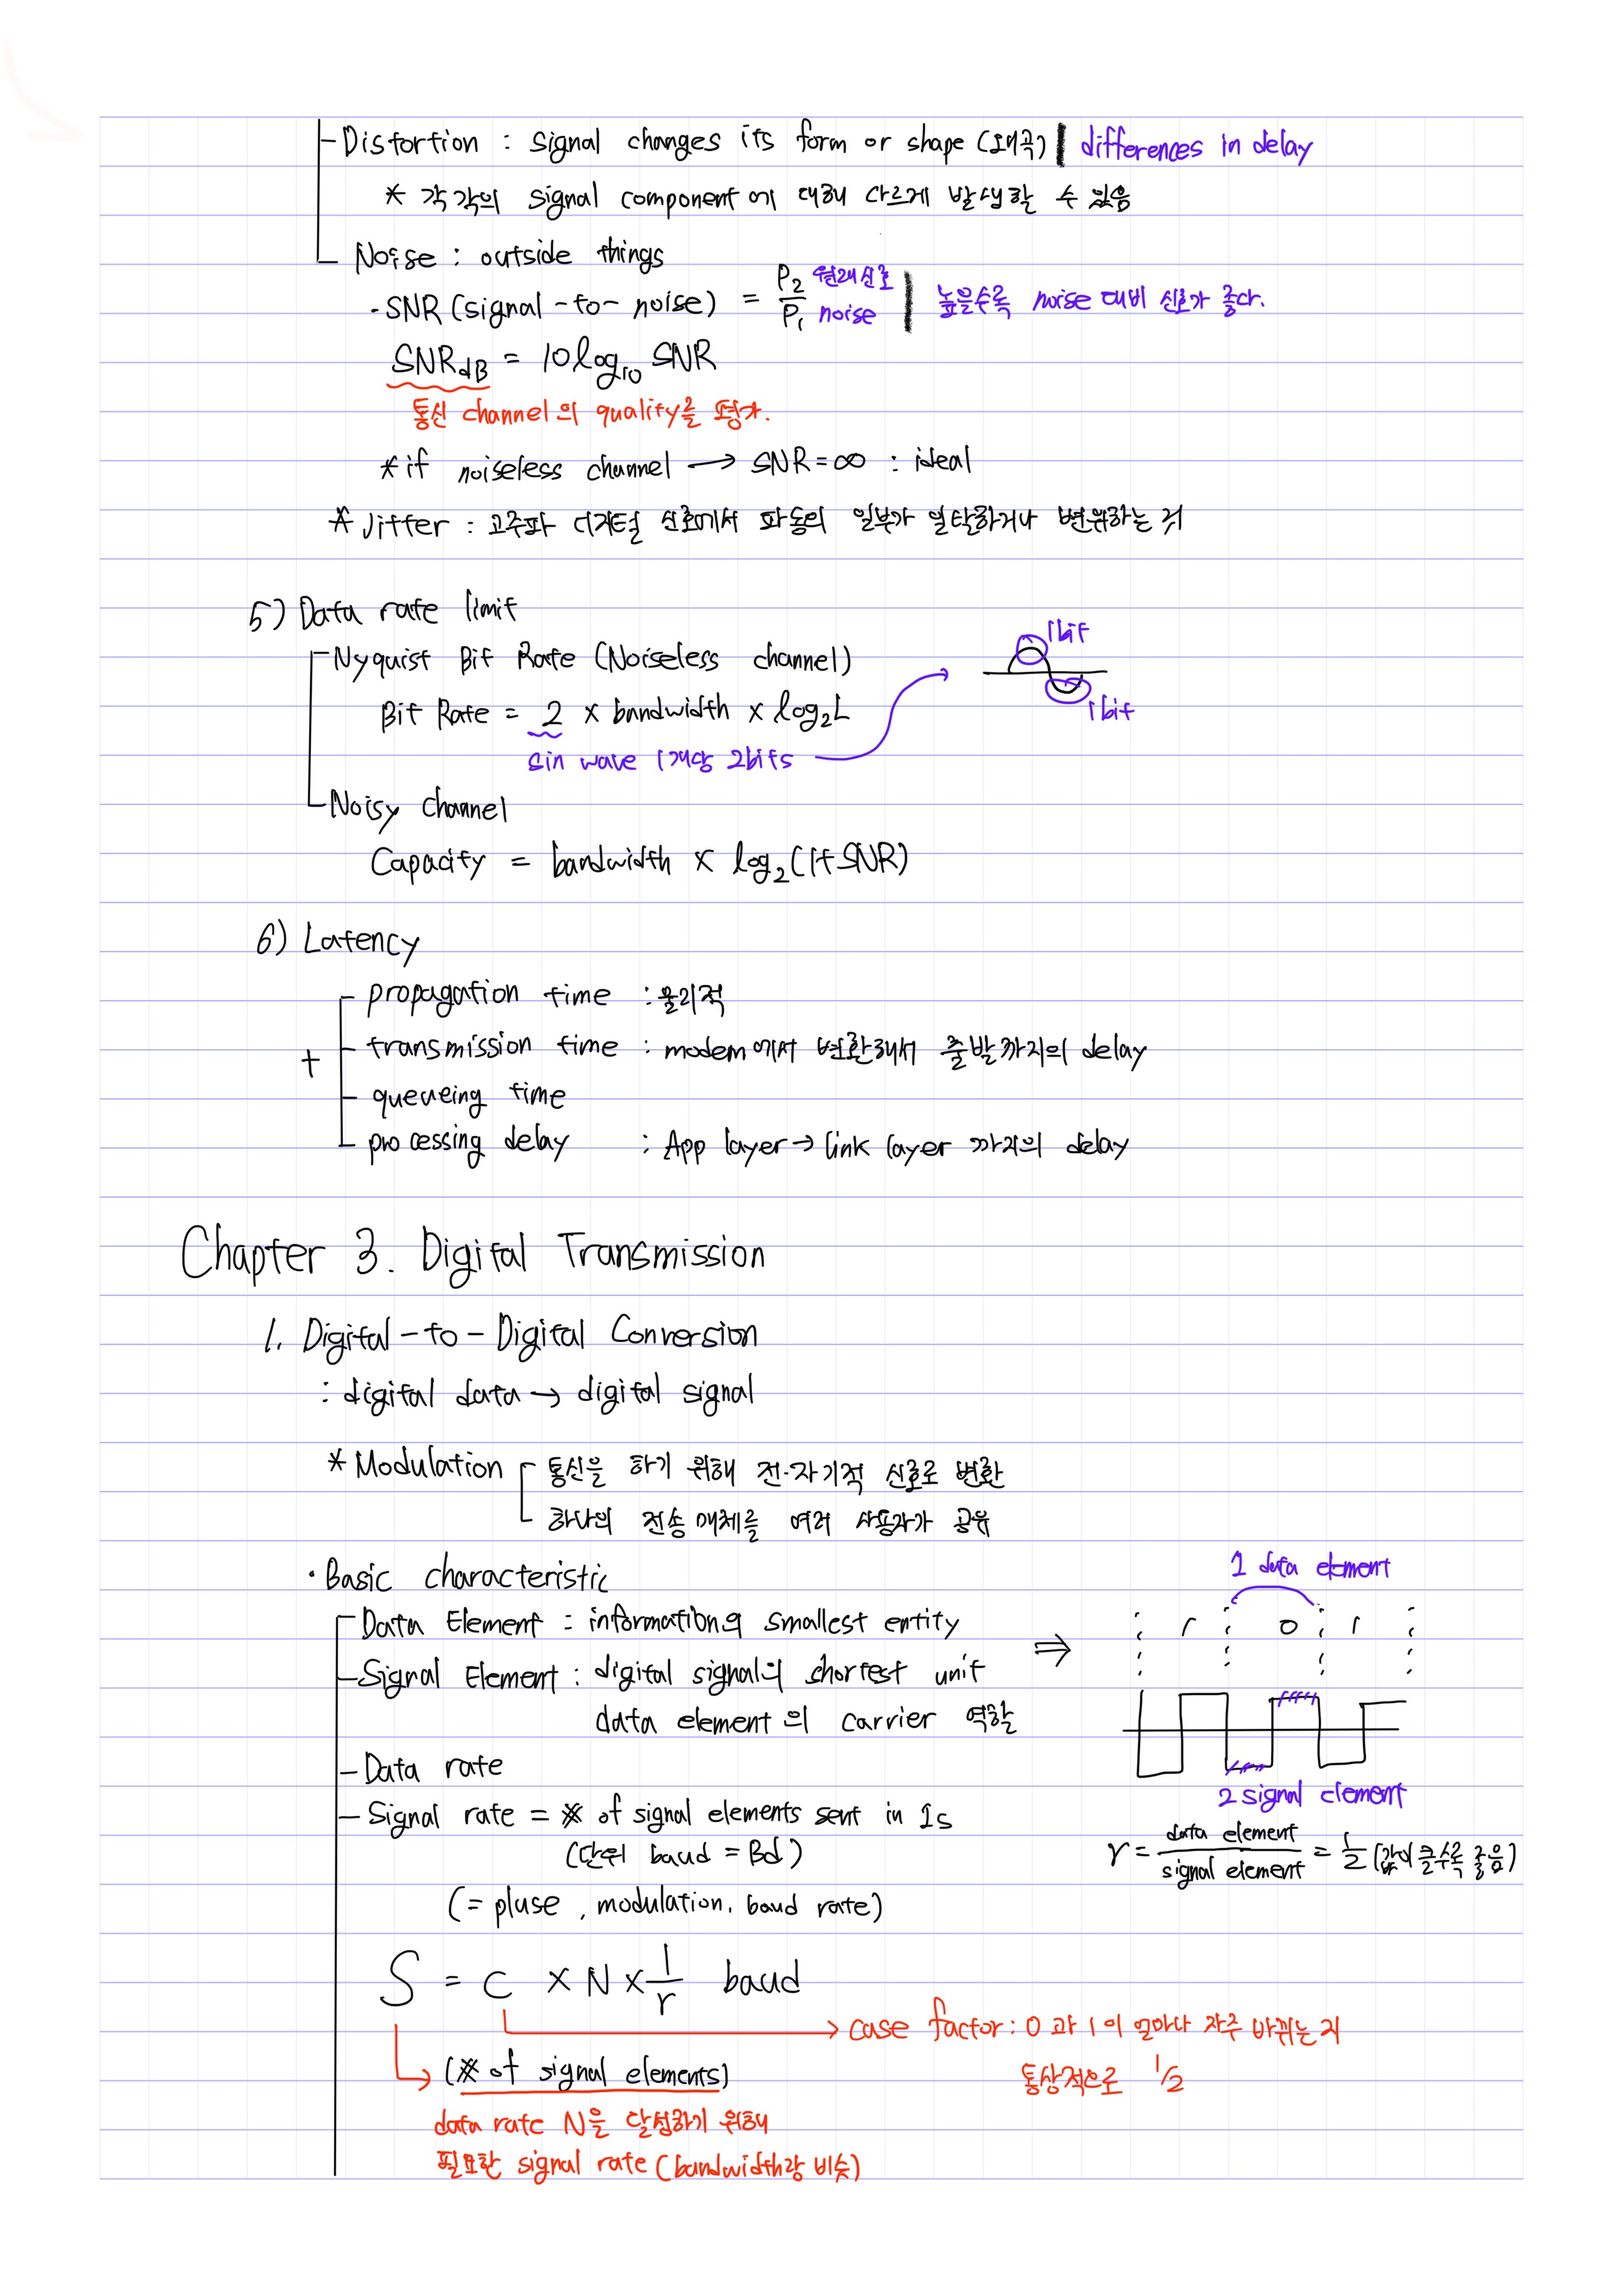 - Distortion : signal changes its form or shape (왜곡) | differences in delay
* 각각의 signal component에 대해 다르게 발생할 수 있음
Noise : outside things
· SNR (signal-to-noise) = P2 / P1 원래신호 noise | 높을수록 noise 대비 신호가 좋다.
SNRdB = 10log10 SNR
통신 channel의 quality를 평가.
* if noiseless channel → SNR = ∞ : ideal
* Jitter : 고주파 디지털 신호에서 파동의 일부가 일탈하거나 변위하는 것
5) Data rate limit
- Nyquist Bit Rate (Noiseless channel)
1bit
Bit Rate = 2 × bandwidth × log2L
1bit
sin wave 1개당 2bits
- Noisy channel
Capacity = bandwidth × log2(1+SNR)
6) Latency
- propagation time : 물리적
+ - transmission time : modem에서 변환해서 출발까지의 delay
- queueing time
- processing delay : App layer → link layer 까지의 delay
Chapter 3. Digital Transmission
1. Digital-to-Digital Conversion
: digital data → digital signal
* Modulation 통신을 하기 위해 전·자기적 신호로 변환
하나의 전송 매체를 여러 사용자가 공유
· Basic characteristic
1 data element
- Data Element : information의 smallest entity ⇒
1 0 1
- Signal Element : digital signal의 shortest unit
data element의 carrier 역할
- Data rate
2 signal element
- Signal rate = # of signal elements sent in 1s
(단위 baud = Bd)
r = data element / signal element = 1/2 (값이 클수록 좋음)
(= pluse, modulation, baud rate)
S = C × N × 1/r baud
→ case factor : 0과 1이 얼마나 자주 바뀌는지
(# of signal elements)
통상적으로 1/2
data rate N을 달성하기 위해
필요한 signal rate (bandwidth랑 비슷)